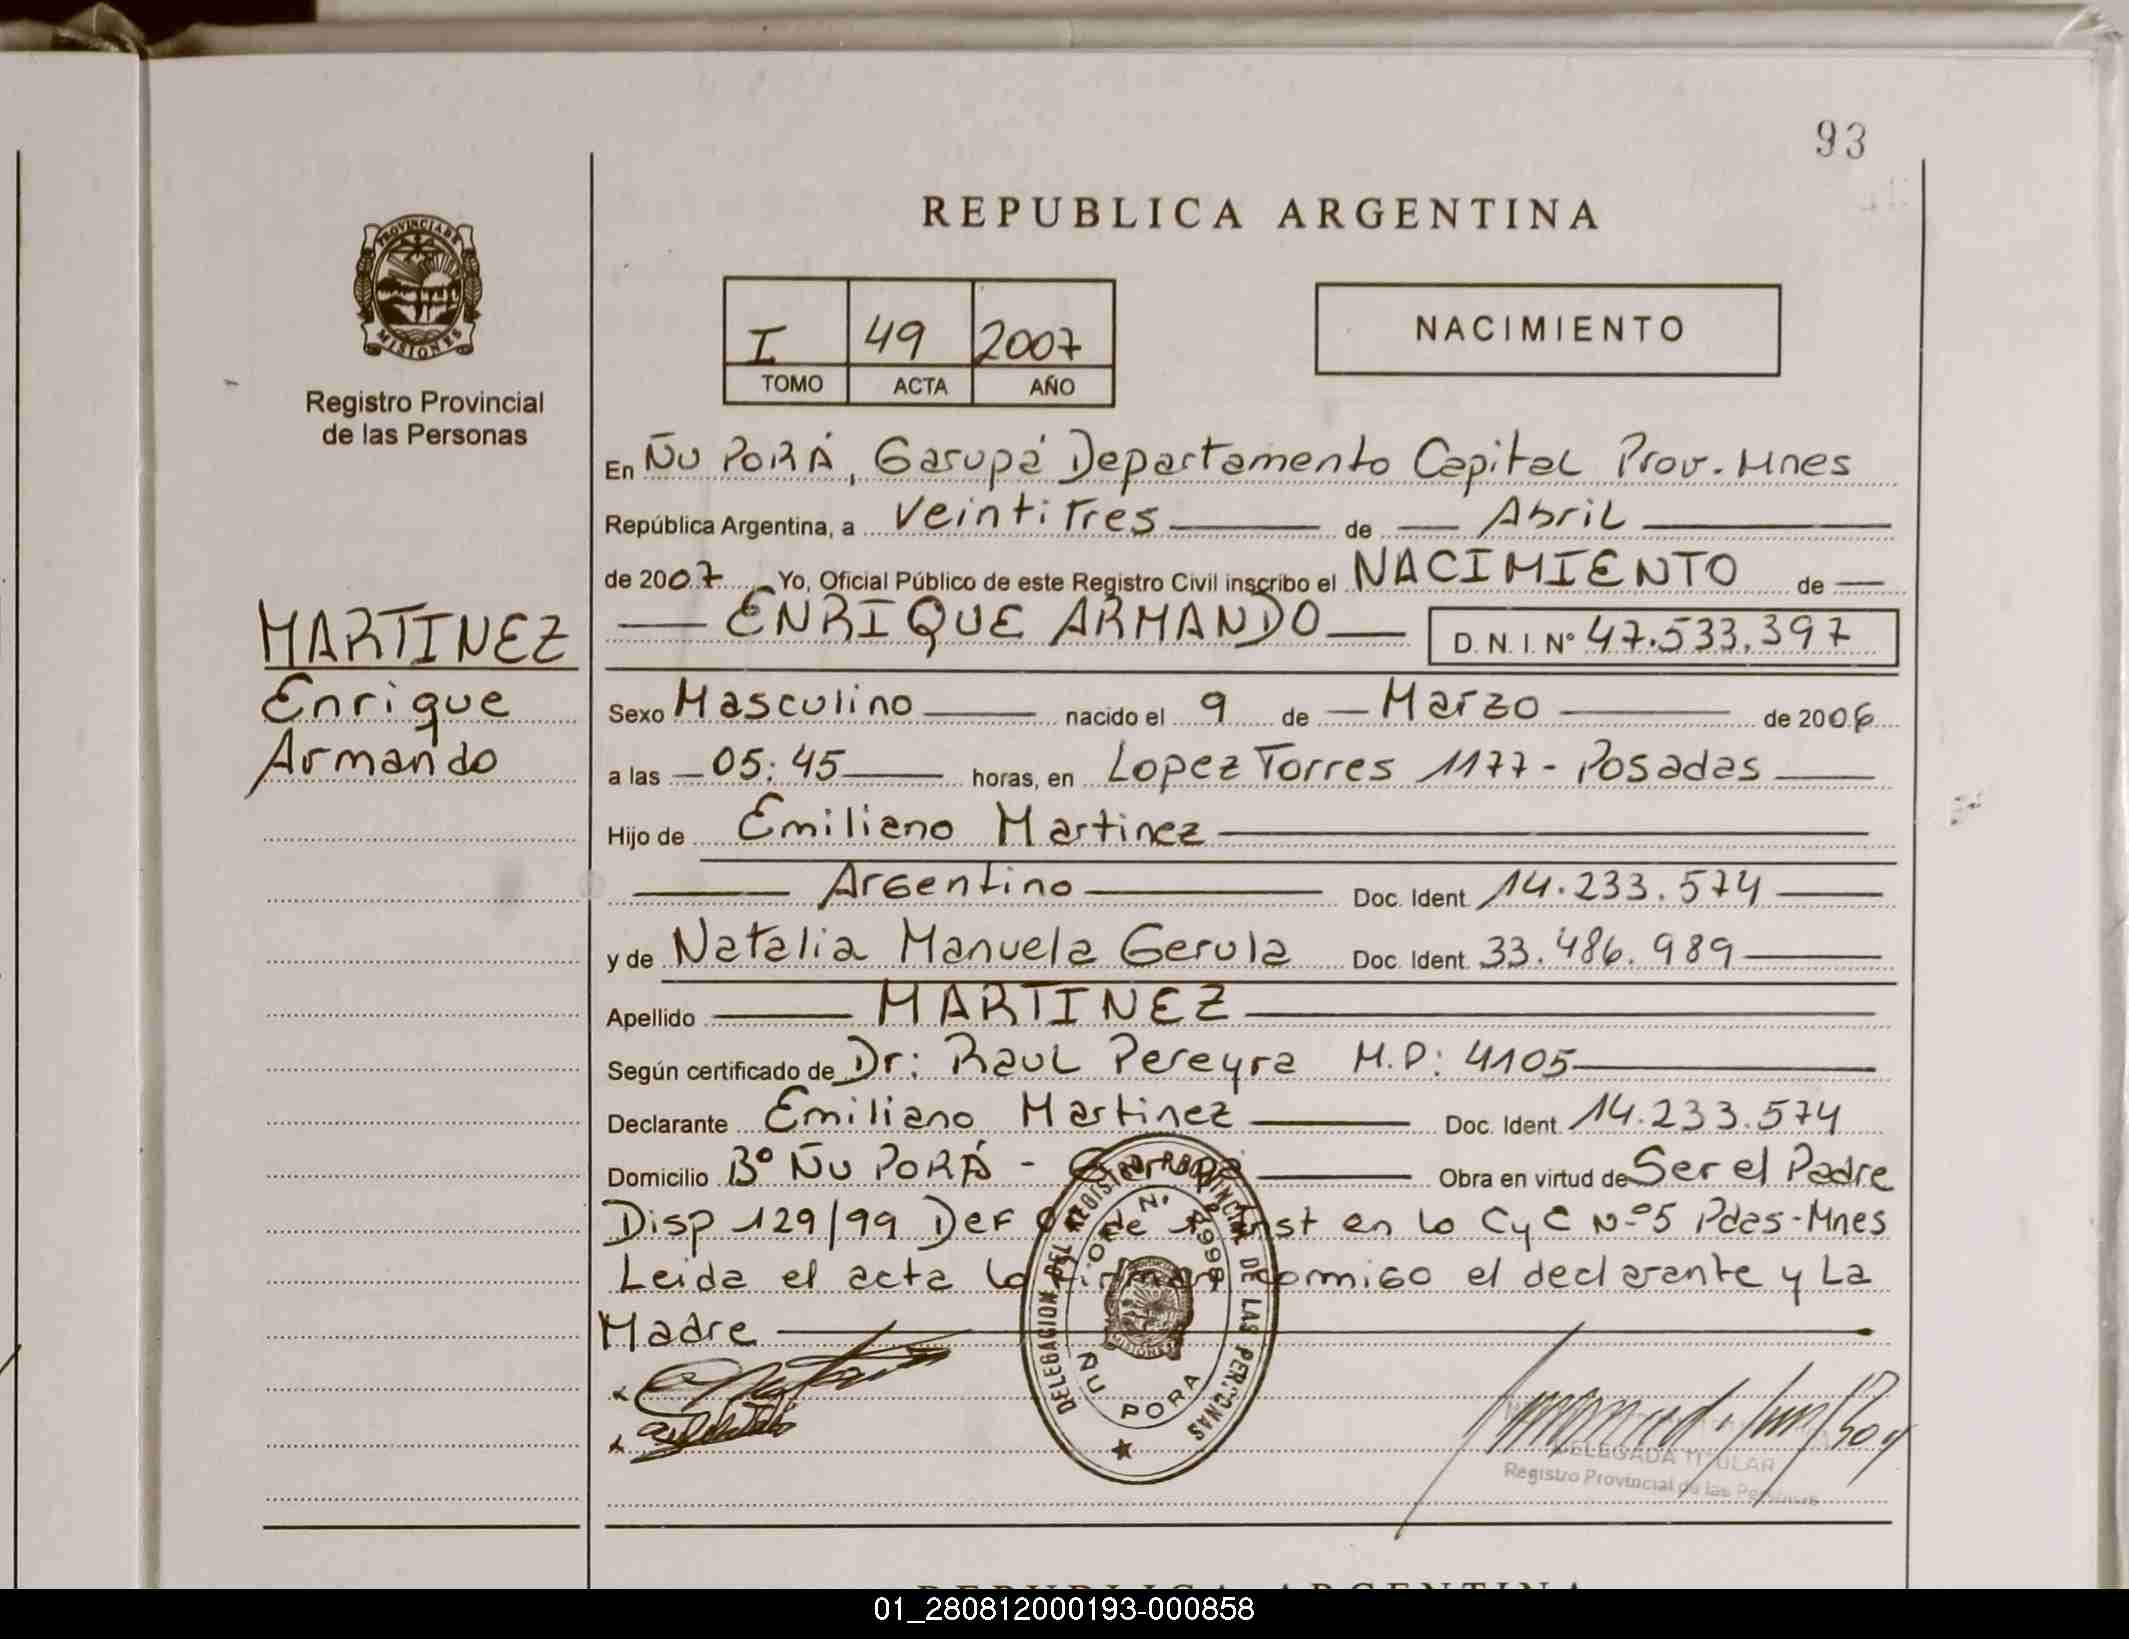 93
PROVINCIA DE
MISIONES
Registro Provincial
de las Personas
REPUBLICA ARGENTINA
I 49 2007
TOMO ACTA AÑO
NACIMIENTO
En Ñu PORÁ, Garupá Departamento Capital Prov. Mnes
República Argentina, a veintiTres de Abril
de 2007 Yo, Oficial Público de este Registro Civil inscribo el NACIMIENTO de
ENRIQUE ARMANDO D. N. I. N° 47.533.397
MARTINEZ
Enrique
Armando
Sexo Masculino nacido el 9 de Marzo de 2006
a las 05:45 horas, en Lopez Torres 1177 - Posadas
Hijo de Emiliano Martinez
Argentino Doc. Ident. 14.233.574
y de Natalia Manuela Gerula Doc. Ident. 33.486.989
Apellido MARTINEZ
Según certificado de Dr: Raul Pereyra M.P: 4105
Declarante Emiliano Martinez Doc. Ident. 14.233.574
Domicilio B° Ñu PORÁ - Obra en virtud de Ser el Padre
Disp 129/99 Def de Inst en lo CyC N°5 Pdas-Mnes
Leida el acta la conmigo el declarante y La
Madre
DELEGACION DEL REGISTRO PROVINCIAL DE LAS PERSONAS
ÑU PORA
MISIONES
DELEGADA TITULAR
Registro Provincial de las Personas
REPUBLICA ARGENTINA
01_280812000193-000858